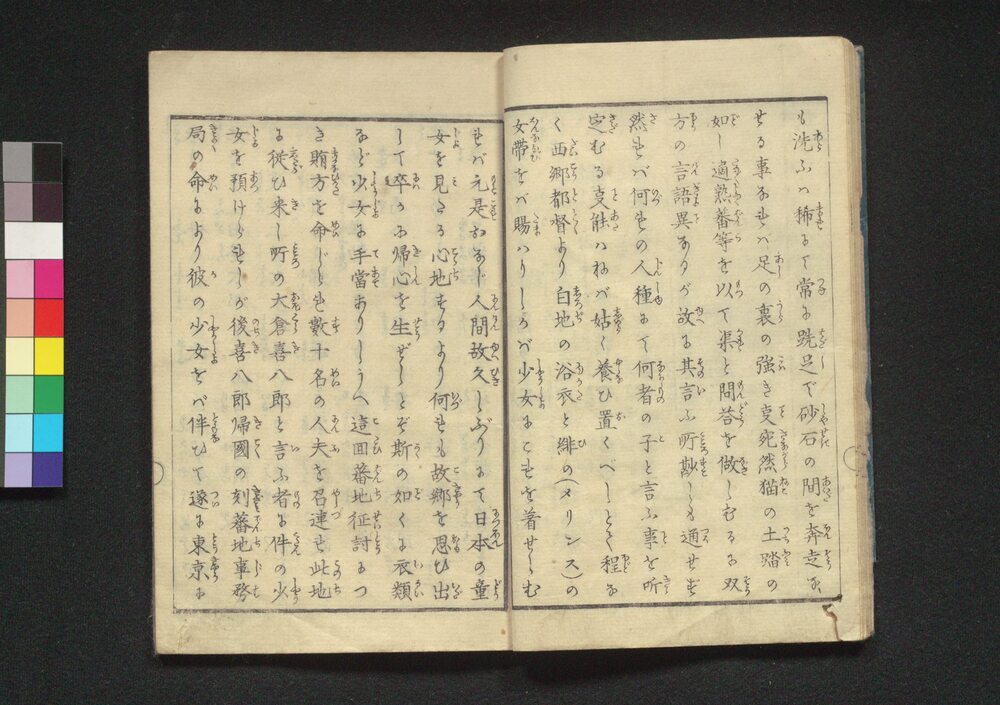 も洗ふハ稀にて常に跣足で砂石の間を奔走な
せる事なれハ足の裏の強き叓宛然猫の土踏の
如し適熟蕃等を以て渠と問荅を做しむるに双
方の言語異なるが故に其言ふ所尠しも通せず
然れバ何れの人種にて何者の子と言ふ事を所
定むる叓能ハねバ姑く養ひ置くべしとて程な
く西郷都督より白地の浴衣と緋の(メリンス)の
女帯をバ賜ハりしかバ少女にこれを着せしむ
れバ元是おなじ人間故久しぶりにて日本の童
女を見たる心地するより何れも故郷を思ひ出
して卒かに帰心を生ぜしとぞ斯の如くに衣類
など少女に手當ありしうへ這回蕃地征討につ
き賄方を命じられ數十名の人夫を召連れ此地
に従ひ来し所の大倉喜八郎と言ふ者に件の少
女を預けられしが後喜八郎帰國の刻蕃地事務
局の命により彼の少女をバ伴ひて遂に東京に